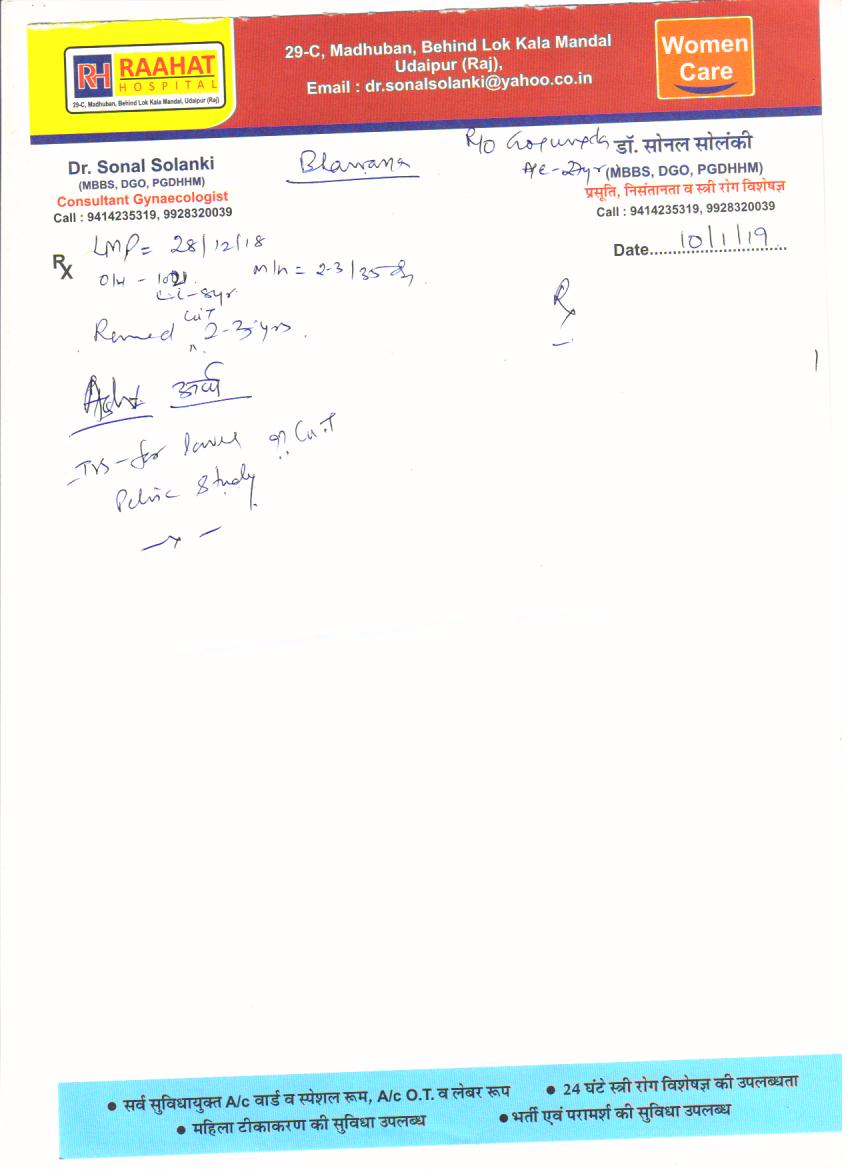 RH RAAHAT
HOSPITAL
29-C, Madhuban, Behind Lok Kala Mandal, Udaipur (Raj)
29-C, Madhuban, Behind Lok Kala Mandal
Udaipur (Raj),
Email : dr.sonalsolanki@yahoo.co.in
Women
Care
Dr. Sonal Solanki
(MBBS, DGO, PGDHHM)
Consultant Gynaecologist
Call : 9414235319, 9928320039
Bhawana
R/o Gogunda
डॉ. सोनल सोलंकी
(MBBS, DGO, PGDHHM)
प्रसूति, निसंतानता व स्त्री रोग विशेषज्ञ
Call : 9414235319, 9928320039
Date 10/1/19
Rx
LMP = 28/12/18
O/H -
M/H = 2-3/35
- 8yr
CuT
2-3 yrs
Rx
Advt
TVS - for
CuT
Pelvic Study
• सर्व सुविधायुक्त A/c वार्ड व स्पेशल रूम, A/c O.T. व लेबर रूप
• 24 घंटे स्त्री रोग विशेषज्ञ की उपलब्धता
• महिला टीकाकरण की सुविधा उपलब्ध
• भर्ती एवं परामर्श की सुविधा उपलब्ध